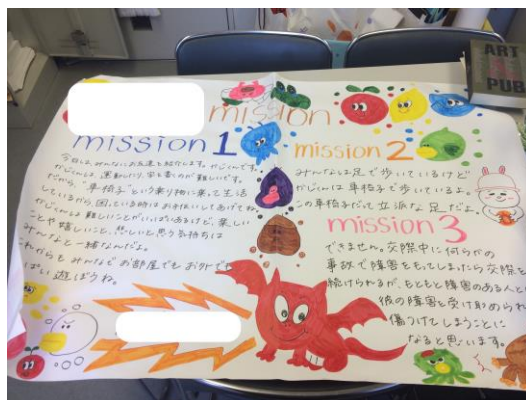 mission
mission 1
今日は、みんなにお友達を紹介します。かじくんです。
かじくんは、運動したり、字を書くのが難しいです。
だから、"車椅子"という乗り物に乗って生活
しているから、困っている時はお手伝いしてあげてね。
かじくんは難しいことがいっぱいあるけど、楽しい
ことや嬉しいこと、悲しいと思う気持ちは
みんなと一緒なんだよ。
これからもみんなでお部屋でもお外で
ぱい遊ぼうね。
mission 2
みんなは足で歩いているけど
かじくんは車椅子で歩いているよ。
この車椅子だって立派な足だよ。
mission 3
できません。交際中に何らかの
事故で障害をもってしまったら交際を
続けられるが、もともと障害のある人と
彼の障害を受け止められ
傷つけてしまうことに
なると思います。
ART
PUB